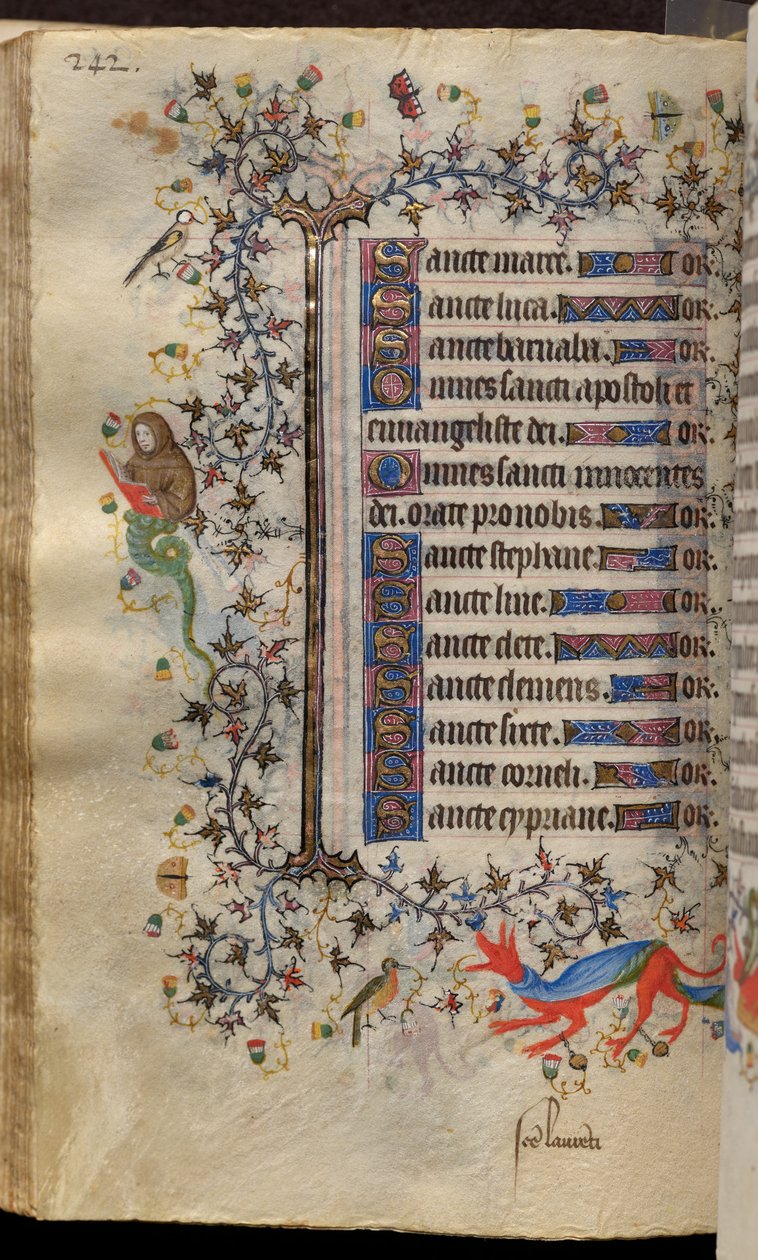 242.
Sancte marce. OR.
Sancte luca. OR.
Sancte barnaba. OR.
Omnes sancti apostoli et
euuangeliste dei. OR.
Omnes sancti innocentes
dei. orate pro nobis. OR.
Sancte stephane. OR.
Sancte line. OR.
Sancte clete. OR.
Sancte clemens. OR.
Sancte sixte. OR.
Sancte corneli. OR.
Sancte cypriane. OR.
sc̄e laurēti